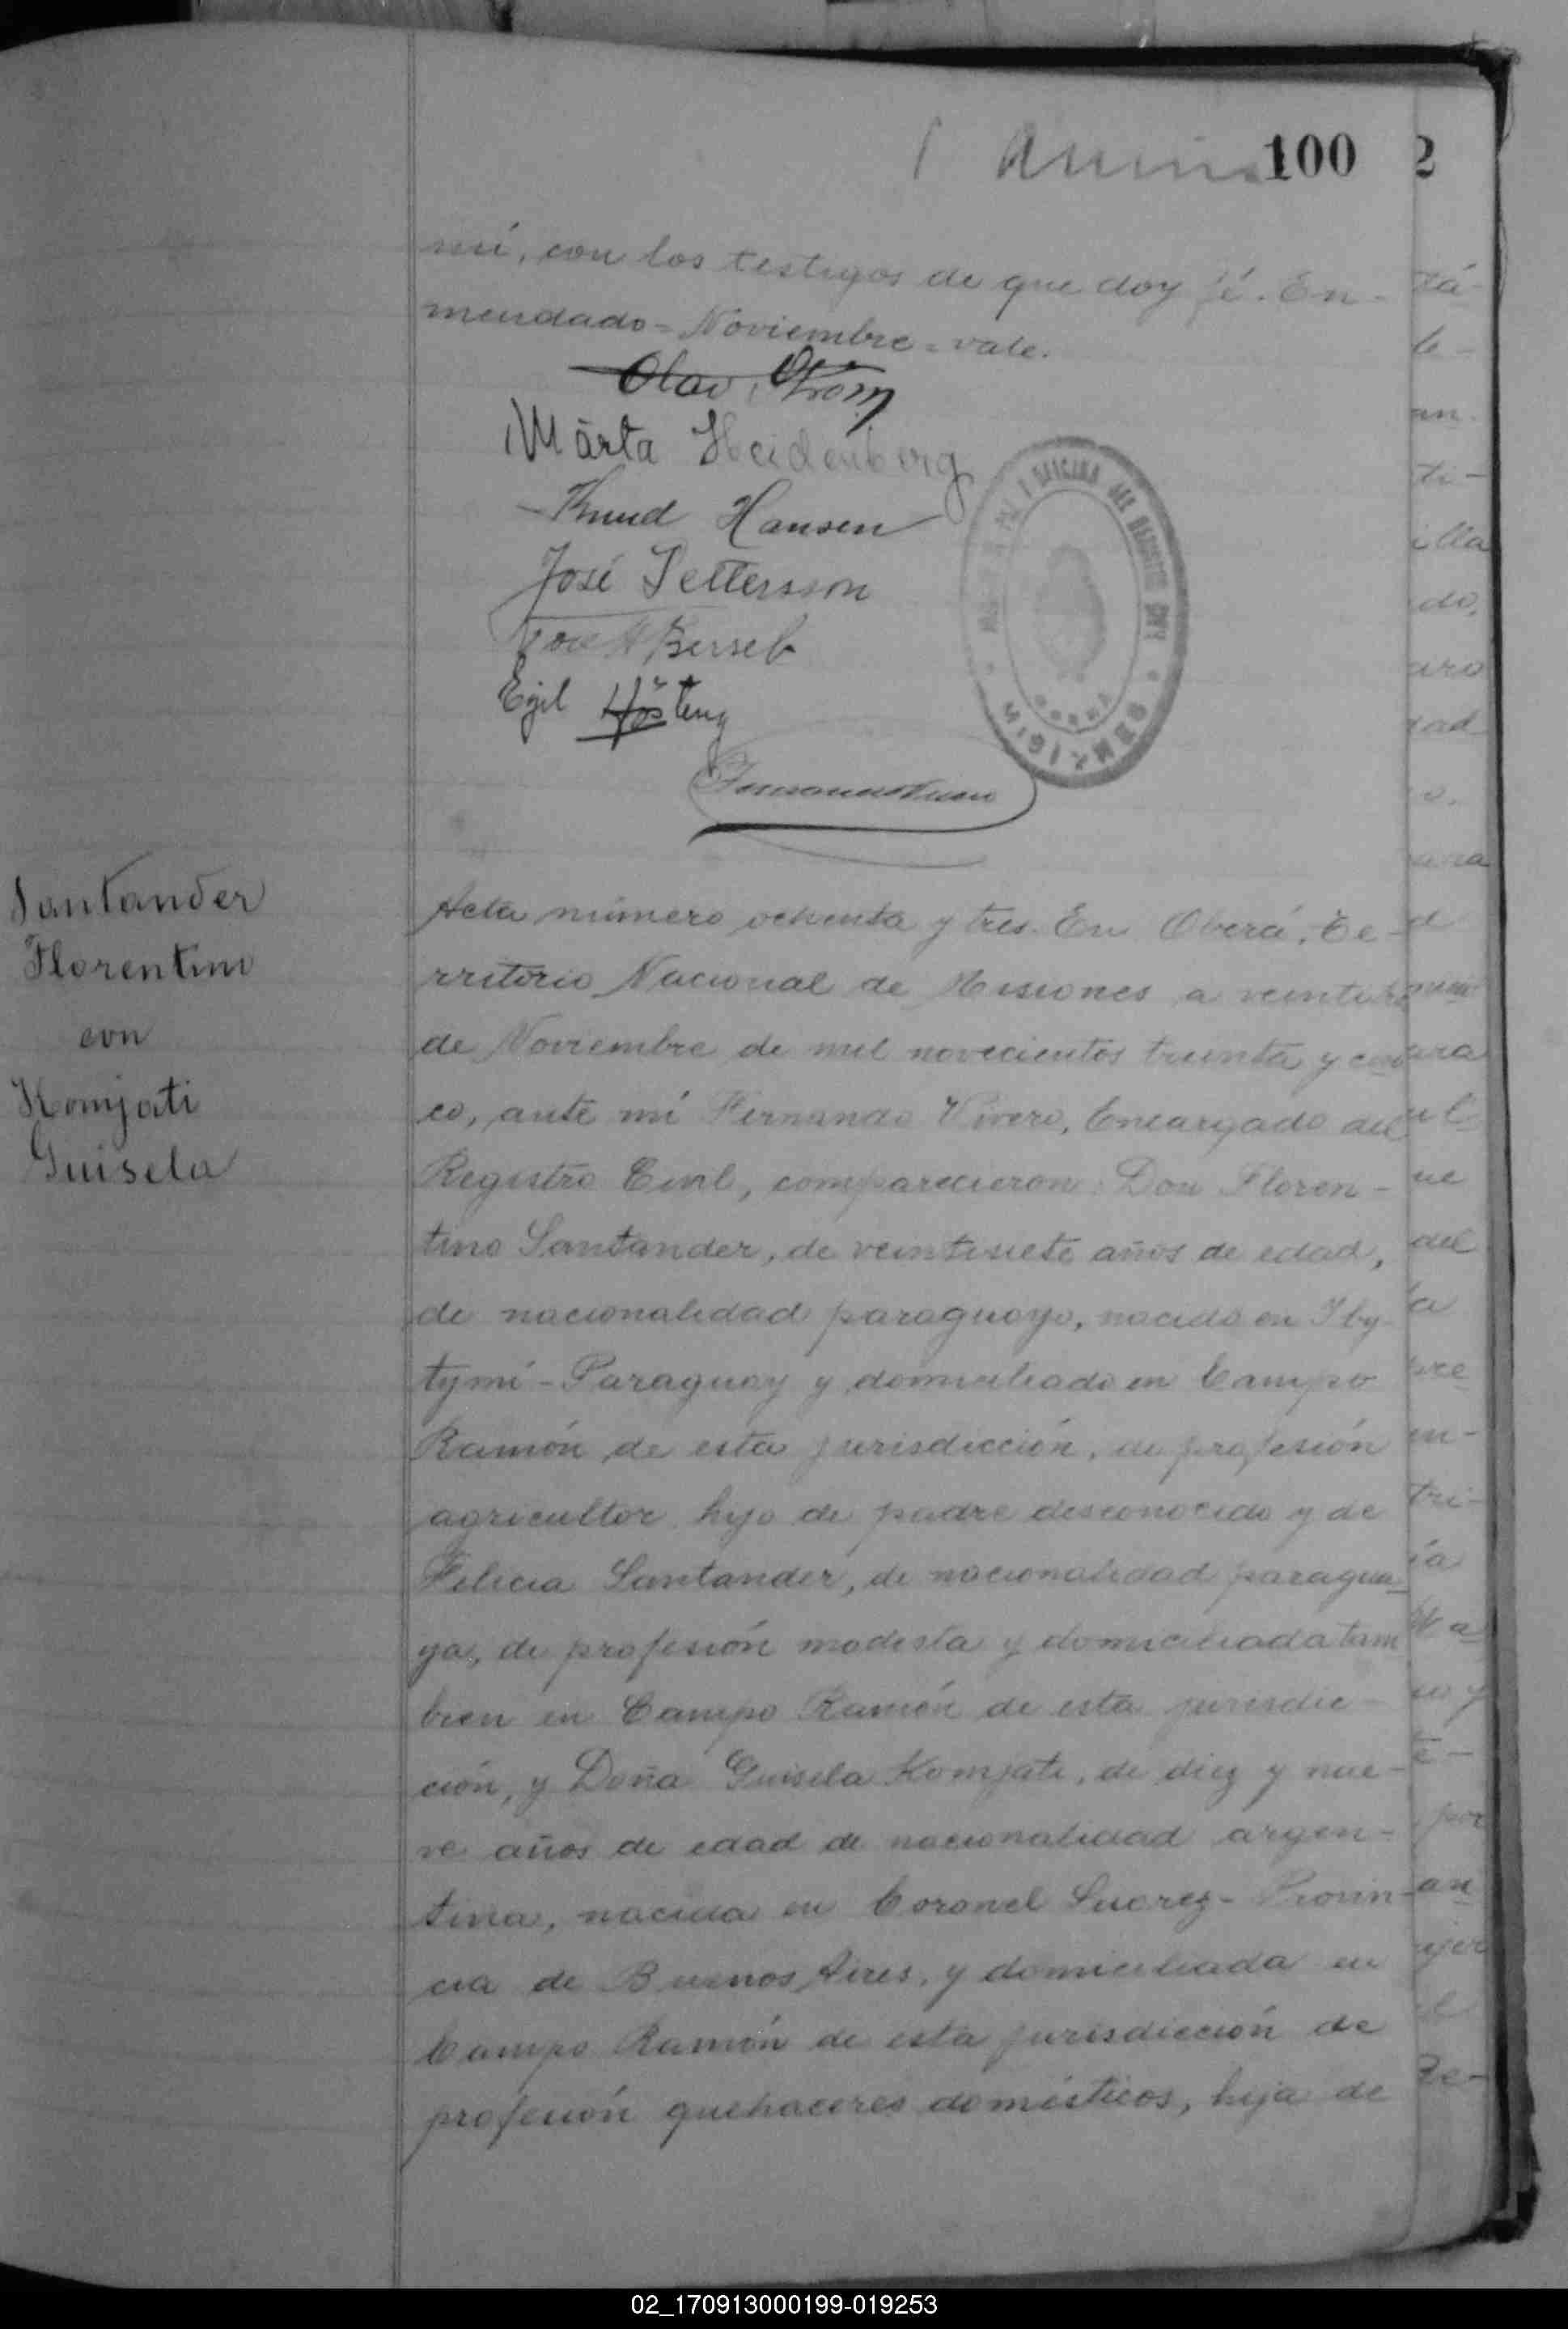 100 2
mí, con los testigos de que doy fé. En-
mendado=Noviembre=vale.
Olav Ström
Märta Heidenberg
Knud Hansen
José Pettersson
Egil
MISIONES
Santander
Florentino
con
Komjati
Guisela
Acta número ochenta y tres. En Oberá, Te-
rritorio Nacional de Misiones a
de Noviembre de mil novecientos treinta y cin
co, ante mí Fernando Vivero, Encargado del
Registro Civil, comparecieron: Don Floren-
tino Santander, de veintisiete años de edad,
de nacionalidad paraguayo, nacido en Iby-
tymí-Paraguay y domiciliado en Campo
Ramón de esta jurisdicción, de profesión
agricultor hijo de padre desconocido y de
Felicia Santander, de nacionalidad paragua
ya, de profesión modista y domiciliada tam
bien en Campo Ramón de esta jurisdic-
ción, y Doña Guisela Komjati, de diez y nue-
ve años de edad de nacionalidad argen-
tina, nacida en Coronel Suarez- Provin-
cia de Buenos Aires, y domiciliada en
Campo Ramón de esta jurisdicción de
profesión quehaceres domésticos, hija de
02_170913000199-019253